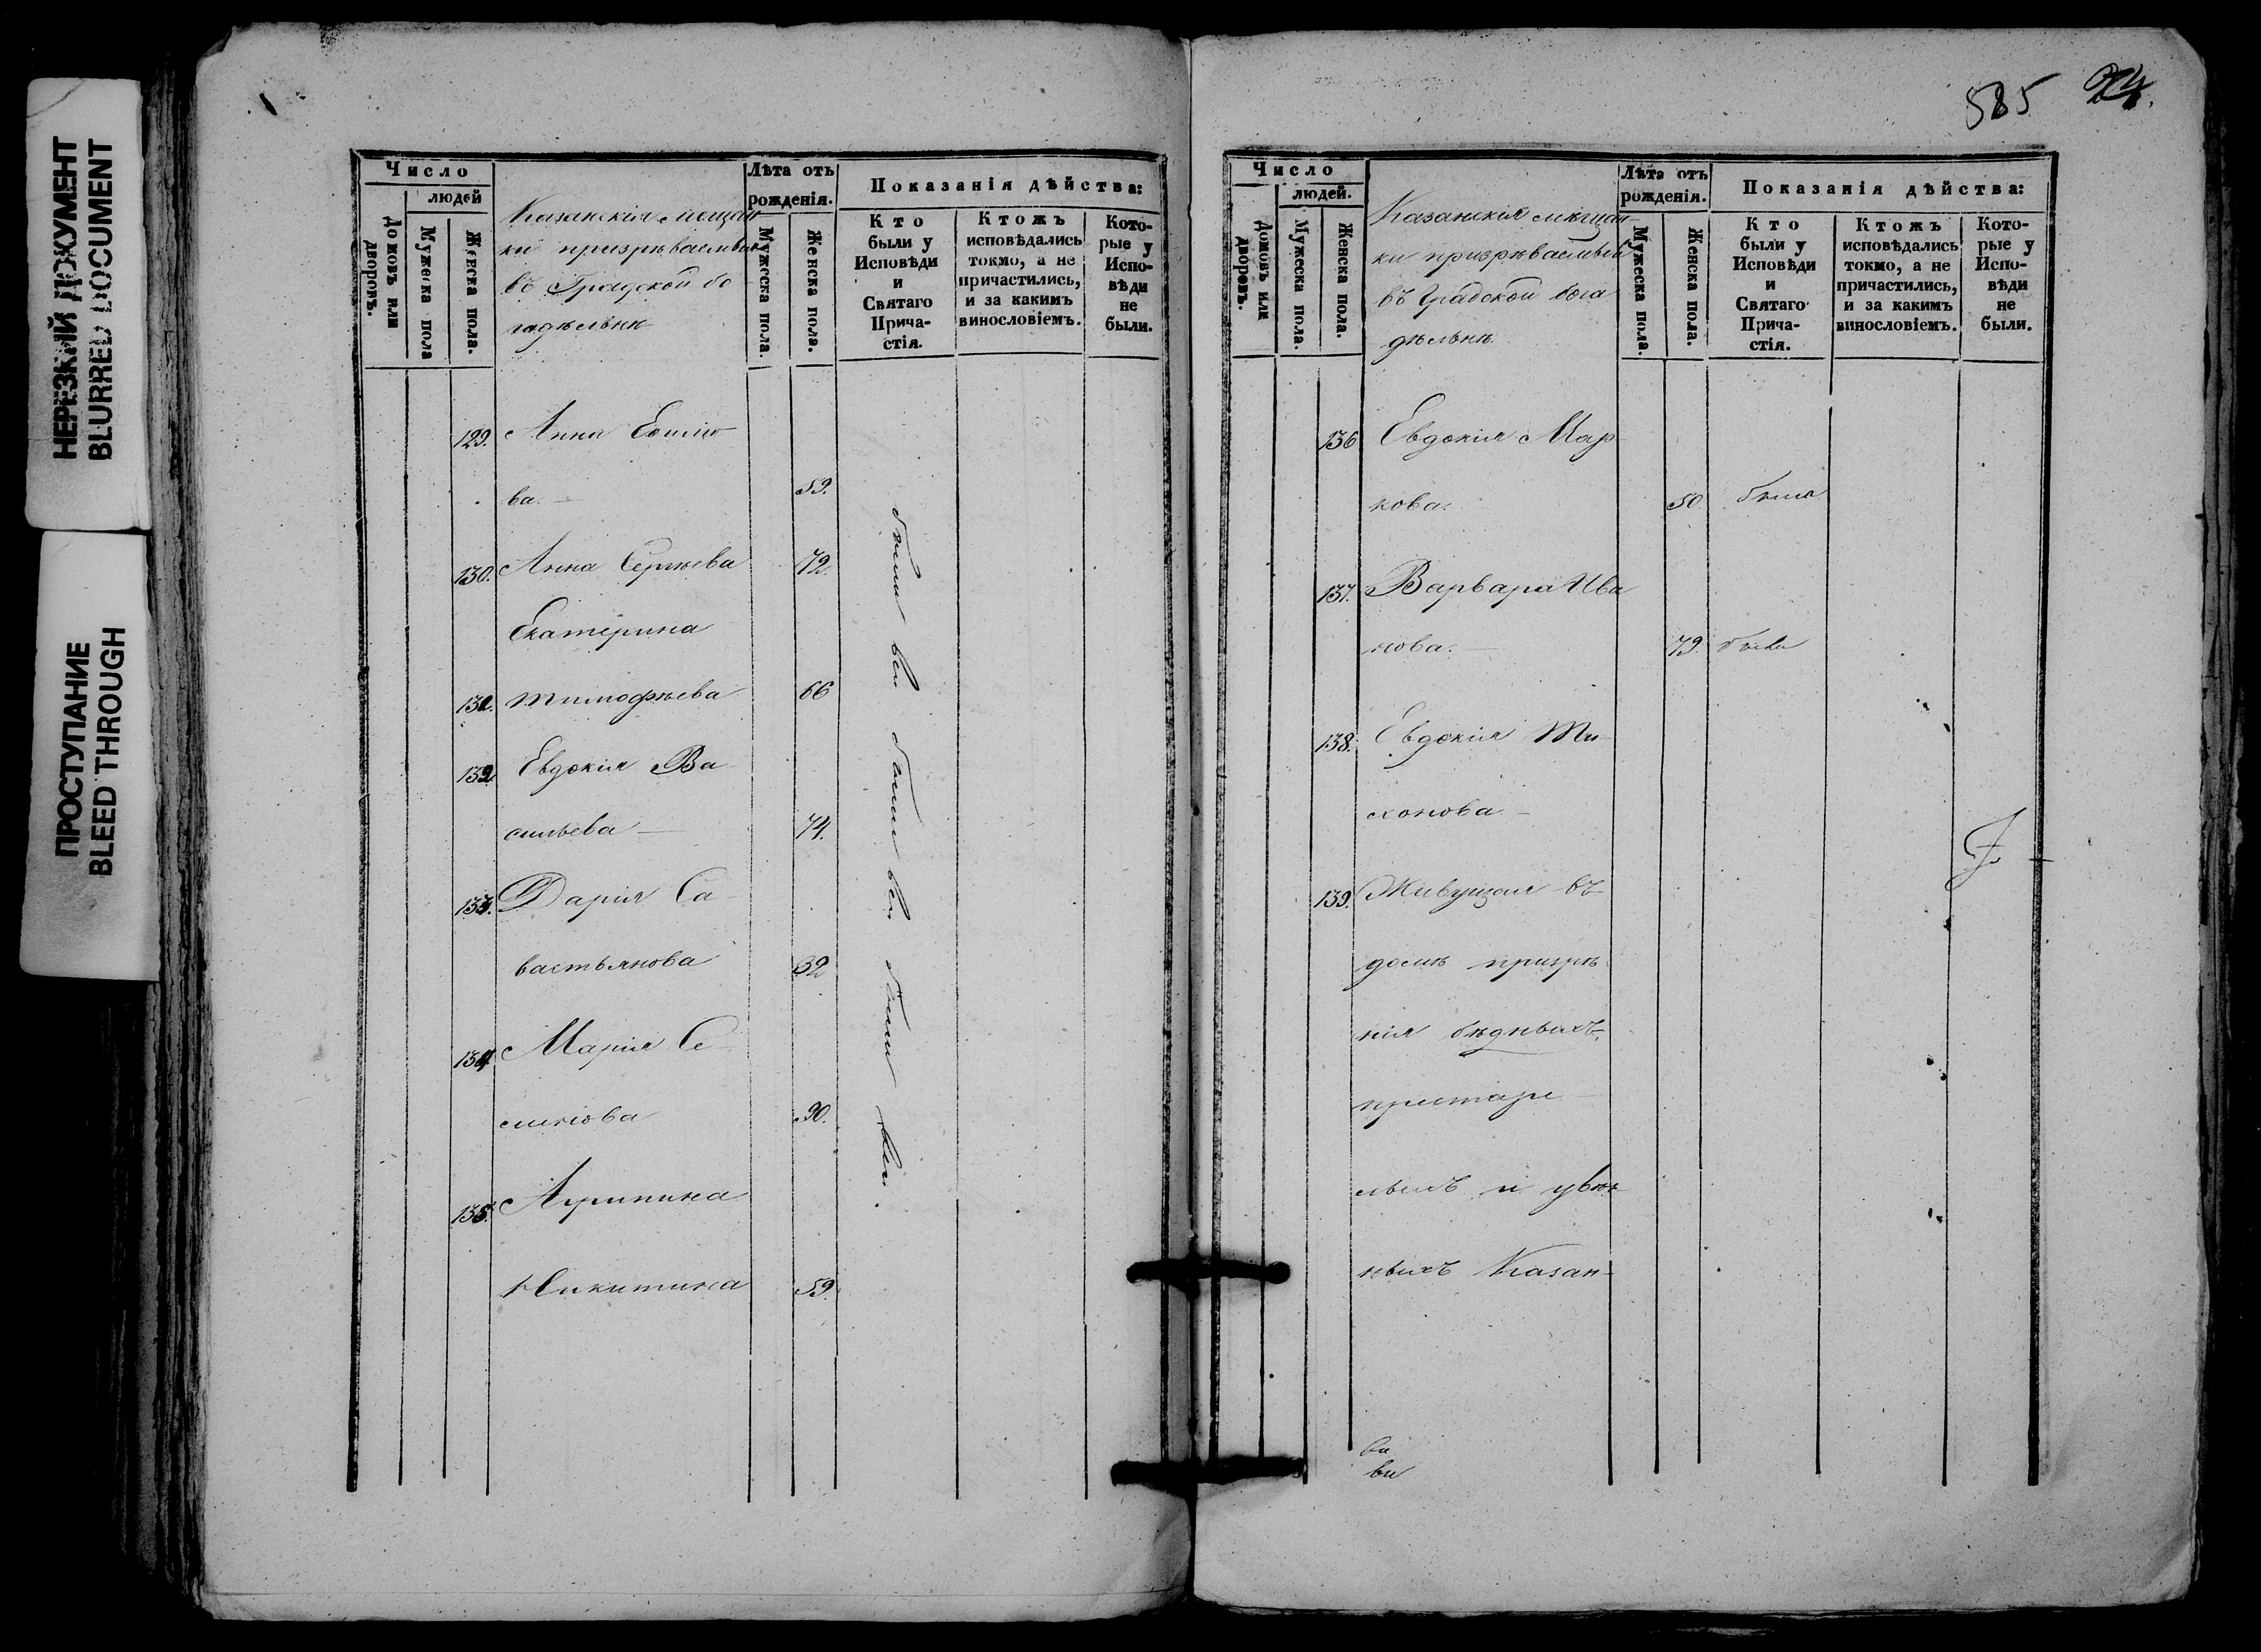 НЕРЕЗКИЙ ДОКУМЕНТ
BLURRED DOCUMENT
ПРОСТУПАНИЕ
BLEED THROUGH
Число
людей
Домовъ или дворовъ.
Мужеска пола
Женска пола.
Казанскія мещан-
ки призрѣваемыя
въ Градской бо
гадѣльнѣ
Лѣта отъ
рожденія.
Мужеска пола.
Женска пола.
Показанія дѣйства:
Кто
были у
Исповѣди
и
Святаго
Прича-
стія.
Ктожъ
исповѣдались
токмо, а не
причастились,
и за какимъ
винословіемъ.
Кото-
рые у
Испо-
вѣди
не
были.
129. Анна
ва. — 59.
130. Анна Сергѣева 72
Екатерина
131. Тимофѣева 66
132 Евдокія Ва-
сильева — 74.
133. Дарія Са-
вастьянова 32
134. Марія Се-
90.
135. Агрипина
Никитина 59.
были вси были вси были вси.
585 24.
Число
людей.
Домовъ или дворовъ.
Мужеска пола.
Женска пола.
Казанскія мѣщан-
ки призрѣваемыя
въ Градской бога
дѣльнѣ
Лѣта отъ
рожденія.
Мужеска пола.
Женска пола.
Показанія дѣйства:
Кто
были у
Исповѣди
и
Святаго
Прича-
стія.
Ктожъ
исповѣдались
токмо, а не
причастились,
и за какимъ
винословіемъ.
Кото-
рые у
Испо-
вѣди
не
были.
136 Евдокія Мар-
кова. 50 была
137. Варвара Ива
нова. — 79. была
138. Евдокія Ти-
хонова —
139. Живущая въ
домѣ призрѣ-
нія бѣдныхъ,
престаре-
лыхъ и увѣч-
ныхъ Казан-